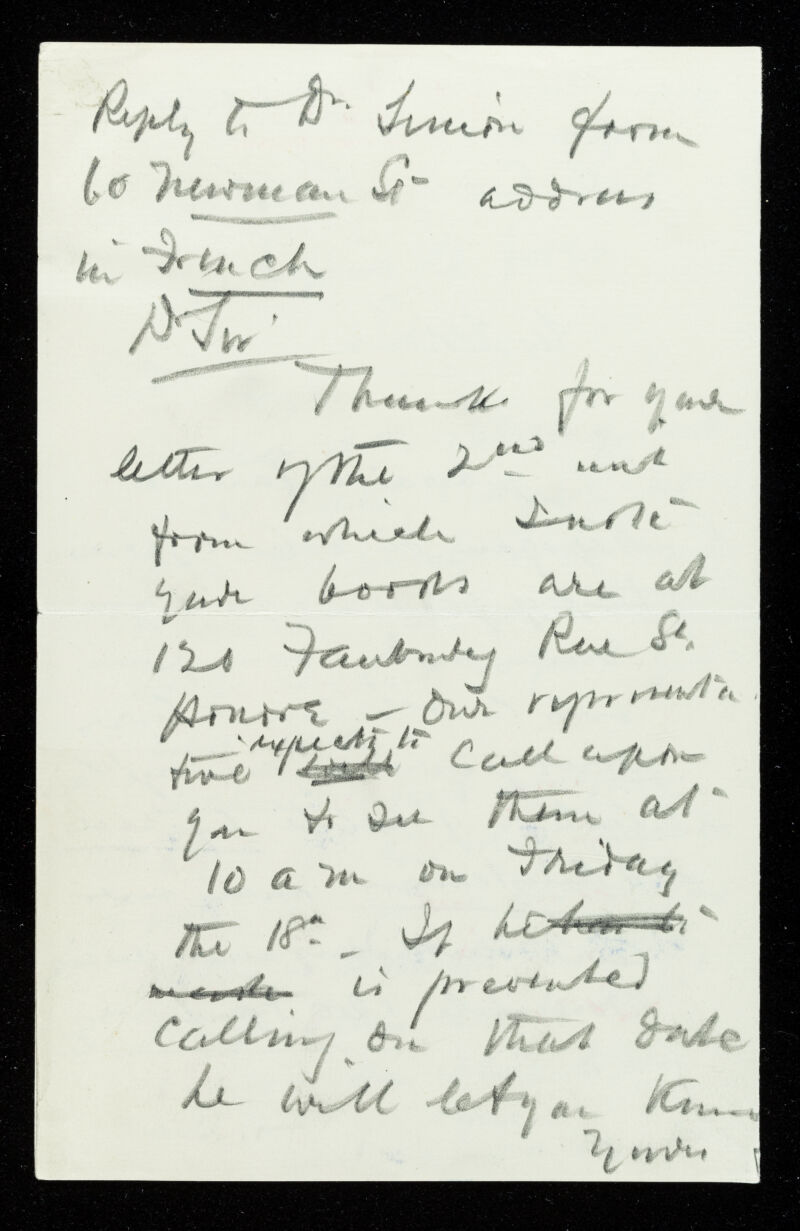 Reply to Dr Simion from
60 Newman St address
in French
Dr Sir
Thanks for your
letter of the 2nd inst
from which I note
your books are at
120 Faubourg Rue St.
Honoré – Our representa
tive expects to call upon
you to see them at
10 a m on Friday
the 18th – If he
is prevented
calling on that date
he will let you know
Yours